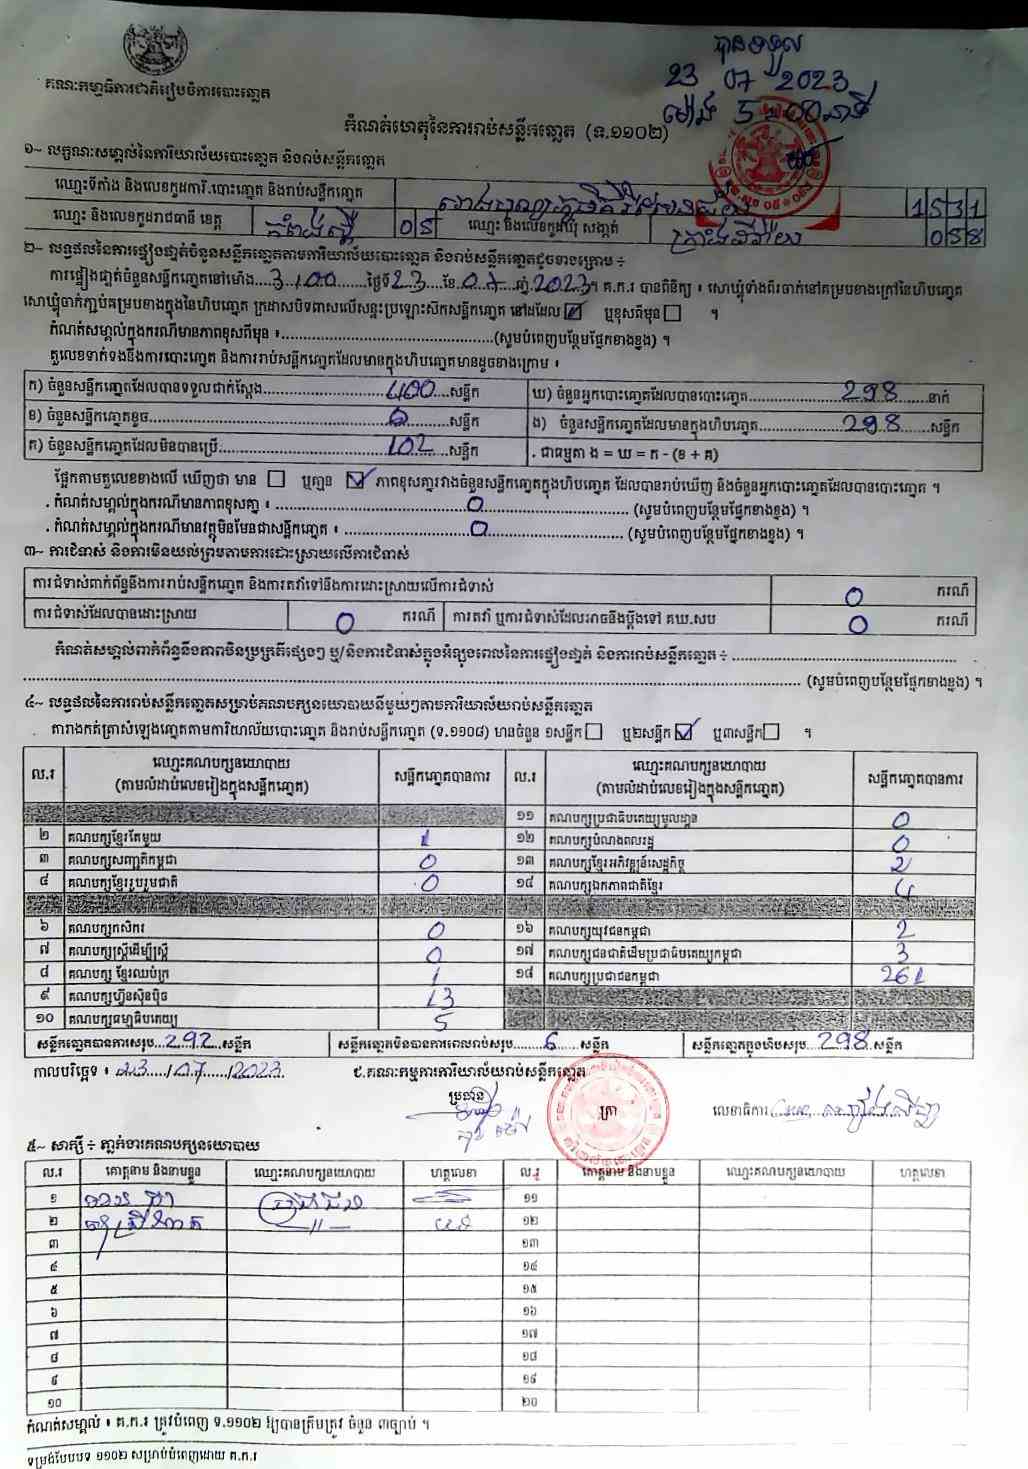 បានទទួល
23 07 2023
ម៉ោង 5:00 នាទី
គណៈកម្មាធិការជាតិរៀបចំការបោះឆ្នោត
កំណត់ហេតុនៃការរាប់សន្លឹកឆ្នោត (ទ.១១០២)
១~ លក្ខណៈសម្គាល់នៃការិយាល័យបោះឆ្នោត និងរាប់សន្លឹកឆ្នោត
ឈ្មោះទីតាំង និងលេខកូដការិ.បោះឆ្នោត និងរាប់សន្លឹកឆ្នោត 1531
ឈ្មោះ និងលេខកូដរាជធានី ខេត្ត កំពង់ស្ពឺ 05 ឈ្មោះ និងលេខកូដឃុំ សង្កាត់ 058
២~ លទ្ធផលនៃការផ្ទៀងផ្ទាត់ចំនួនសន្លឹកឆ្នោតតាមការិយាល័យបោះឆ្នោត និងរាប់សន្លឹកឆ្នោតដូចខាងក្រោម ៖
ការផ្ទៀងផ្ទាត់ចំនួនសន្លឹកឆ្នោតនៅម៉ោង 3:00 ថ្ងៃទី 23 ខែ 07 ឆ្នាំ 2023 ។ គ.ក.រ បានពិនិត្យ ៖ សោឃ្មុំទាំងពីរចាក់នៅគម្របខាងក្រៅនៃហិបឆ្នោត
សោឃ្មុំចាក់ភ្ជាប់គម្របខាងក្នុងនៃហិបឆ្នោត ក្រដាសបិទពាសលើសន្ទះប្រឡោះសឹកសន្លឹកឆ្នោត នៅដដែល ☑ ឬខុសពីមុន ☐ ។
កំណត់សម្គាល់ក្នុងករណីមានភាពខុសពីមុន ៖ (សូមបំពេញបន្ថែមផ្នែកខាងខ្នង) ។
តួលេខទាក់ទងនឹងការបោះឆ្នោត និងការរាប់សន្លឹកឆ្នោតដែលមានក្នុងហិបឆ្នោតមានដូចខាងក្រោម ៖
ក) ចំនួនសន្លឹកឆ្នោតដែលបានទទួលជាក់ស្ដែង 400 សន្លឹក ឃ) ចំនួនអ្នកបោះឆ្នោតដែលបានបោះឆ្នោត 298 នាក់
ខ) ចំនួនសន្លឹកឆ្នោតខូច 0 សន្លឹក ង) ចំនួនសន្លឹកឆ្នោតដែលមានក្នុងហិបឆ្នោត 298 សន្លឹក
គ) ចំនួនសន្លឹកឆ្នោតដែលមិនបានប្រើ 102 សន្លឹក . ជាធម្មតា ង = ឃ = ក - (ខ + គ)
ផ្អែកតាមតួលេខខាងលើ ឃើញថា មាន ☐ ឬគ្មាន ☑ ភាពខុសគ្នារវាងចំនួនសន្លឹកឆ្នោតក្នុងហិបឆ្នោត ដែលបានរាប់ឃើញ និងចំនួនអ្នកបោះឆ្នោតដែលបានបោះឆ្នោត ។
. កំណត់សម្គាល់ក្នុងករណីមានភាពខុសគ្នា ៖ 0 (សូមបំពេញបន្ថែមផ្នែកខាងខ្នង) ។
. កំណត់សម្គាល់ក្នុងករណីមានវត្ថុមិនមែនជាសន្លឹកឆ្នោត ៖ 0 (សូមបំពេញបន្ថែមផ្នែកខាងខ្នង) ។
៣~ ការជំទាស់ និងការមិនយល់ព្រមតាមការដោះស្រាយលើការជំទាស់
ការជំទាស់ពាក់ព័ន្ធនឹងការរាប់សន្លឹកឆ្នោត និងការតវ៉ាទៅនឹងការដោះស្រាយលើការជំទាស់ 0 ករណី
ការជំទាស់ដែលបានដោះស្រាយ 0 ករណី ការតវ៉ា ឬការជំទាស់ដែលអាចនឹងប្ដឹងទៅ គឃ.សប 0 ករណី
កំណត់សម្គាល់ពាក់ព័ន្ធនឹងភាពមិនប្រក្រតីផ្សេងៗ ឬ/និងការជំទាស់ក្នុងអំឡុងពេលនៃការផ្ទៀងផ្ទាត់ និងការរាប់សន្លឹកឆ្នោត ៖
(សូមបំពេញបន្ថែមផ្នែកខាងខ្នង) ។
៤~ លទ្ធផលនៃការរាប់សន្លឹកឆ្នោតសម្រាប់គណបក្សនយោបាយនីមួយៗតាមការិយាល័យរាប់សន្លឹកឆ្នោត
តារាងកត់ត្រាសំឡេងឆ្នោតតាមការិយាល័យបោះឆ្នោត និងរាប់សន្លឹកឆ្នោត (ទ.១១០៨) មានចំនួន ១សន្លឹក ☐ ឬ២សន្លឹក ☑ ឬ៣សន្លឹក ☐ ។
ល.រ ឈ្មោះគណបក្សនយោបាយ សន្លឹកឆ្នោតបានការ ល.រ ឈ្មោះគណបក្សនយោបាយ សន្លឹកឆ្នោតបានការ
(តាមលំដាប់លេខរៀងក្នុងសន្លឹកឆ្នោត) (តាមលំដាប់លេខរៀងក្នុងសន្លឹកឆ្នោត)
១១ គណបក្សប្រជាធិបតេយ្យមូលដ្ឋាន 0
២ គណបក្សខ្មែរតែមួយ 1 ១២ គណបក្សបំណងពលរដ្ឋ 0
៣ គណបក្សសញ្ជាតិកម្ពុជា 0 ១៣ គណបក្សខ្មែរអភិវឌ្ឍន៍សេដ្ឋកិច្ច 2
៤ គណបក្សខ្មែររួបរួមជាតិ 0 ១៤ គណបក្សឯកភាពជាតិខ្មែរ 4
៦ គណបក្សកសិករ 0 ១៦ គណបក្សយុវជនកម្ពុជា 2
៧ គណបក្សស្ត្រីដើម្បីស្ត្រី 0 ១៧ គណបក្សជនជាតិដើមប្រជាធិបតេយ្យកម្ពុជា 3
៨ គណបក្ស ខ្មែរឈប់ក្រ 1 ១៨ គណបក្សប្រជាជនកម្ពុជា 261
៩ គណបក្សហ៊្វុនស៊ិនប៉ិច 13
១០ គណបក្សធម្មាធិបតេយ្យ 5
សន្លឹកឆ្នោតបានការសរុប 292 សន្លឹក សន្លឹកឆ្នោតមិនបានការពេលរាប់សរុប 6 សន្លឹក សន្លឹកឆ្នោតក្នុងហិបសរុប 298 សន្លឹក
កាលបរិច្ឆេទ ៖ 23/07/2023 ជ.គណៈកម្មការការិយាល័យរាប់សន្លឹកឆ្នោត
ប្រធាន ត្រា លេខាធិការ
៥~ សាក្សី ៖ ភ្នាក់ងារគណបក្សនយោបាយ
ល.រ គោត្តនាម និងនាមខ្លួន ឈ្មោះគណបក្សនយោបាយ ហត្ថលេខា ល.រ គោត្តនាម និងនាមខ្លួន ឈ្មោះគណបក្សនយោបាយ ហត្ថលេខា
១ ១១
២ ១២
៣ ១៣
៤ ១៤
៥ ១៥
៦ ១៦
៧ ១៧
៨ ១៨
៩ ១៩
១០ ២០
កំណត់សម្គាល់ ៖ គ.ក.រ ត្រូវបំពេញ ទ.១១០២ ឱ្យបានត្រឹមត្រូវ ចំនួន ៣ច្បាប់ ។
ទម្រង់បែបបទ ១១០២ សម្រាប់បំពេញដោយ គ.ក.រ